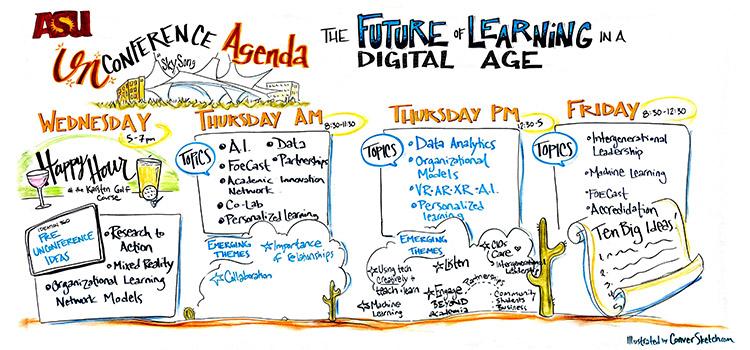 ASU
UnConference Agenda
SkySong
The Future of Learning in a
Digital Age
Wednesday
5-7pm
Happy Hour
at the Karsten Golf
Course
Pre
Unconference
Ideas
• Research to
Action
• Mixed Reality
• Organizational Learning
Network Models
Thursday AM
8:30-11:30
Topics
• A.I.
• Data
• FoeCast
• Partnerships
• Academic Innovation
Network
• Co-Lab
• Personalized Learning
Emerging
Themes
Importance
of relationships
Collaboration
Thursday PM
Topics
• Data Analytics
• Organizational
Models
• VR·AR·XR·A.I.
• Personalized
learning
Emerging
Themes
Using tech
Creatively to
teach·learn
Machine
Learning
Listen
Engage
Beyond
academia
Care
Intergenerational
Leadership
Partnerships
Community
Students
Business
Friday
8:30-12:30
Topics
• Intergenerational
Leadership
• Machine Learning
• FoeCast
• Accredidation
Ten Big Ideas!
1.
2.
3.
4
5
Illustrated by ConverSketch.com